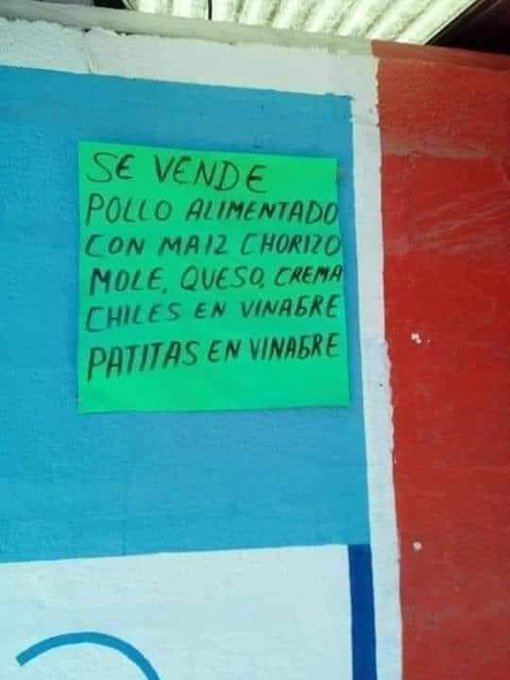 SE VENDE
POLLO ALIMENTADO
CON MAIZ CHORIZO
MOLE, QUESO, CREMA
CHILES EN VINAGRE
PATITAS EN VINAGRE